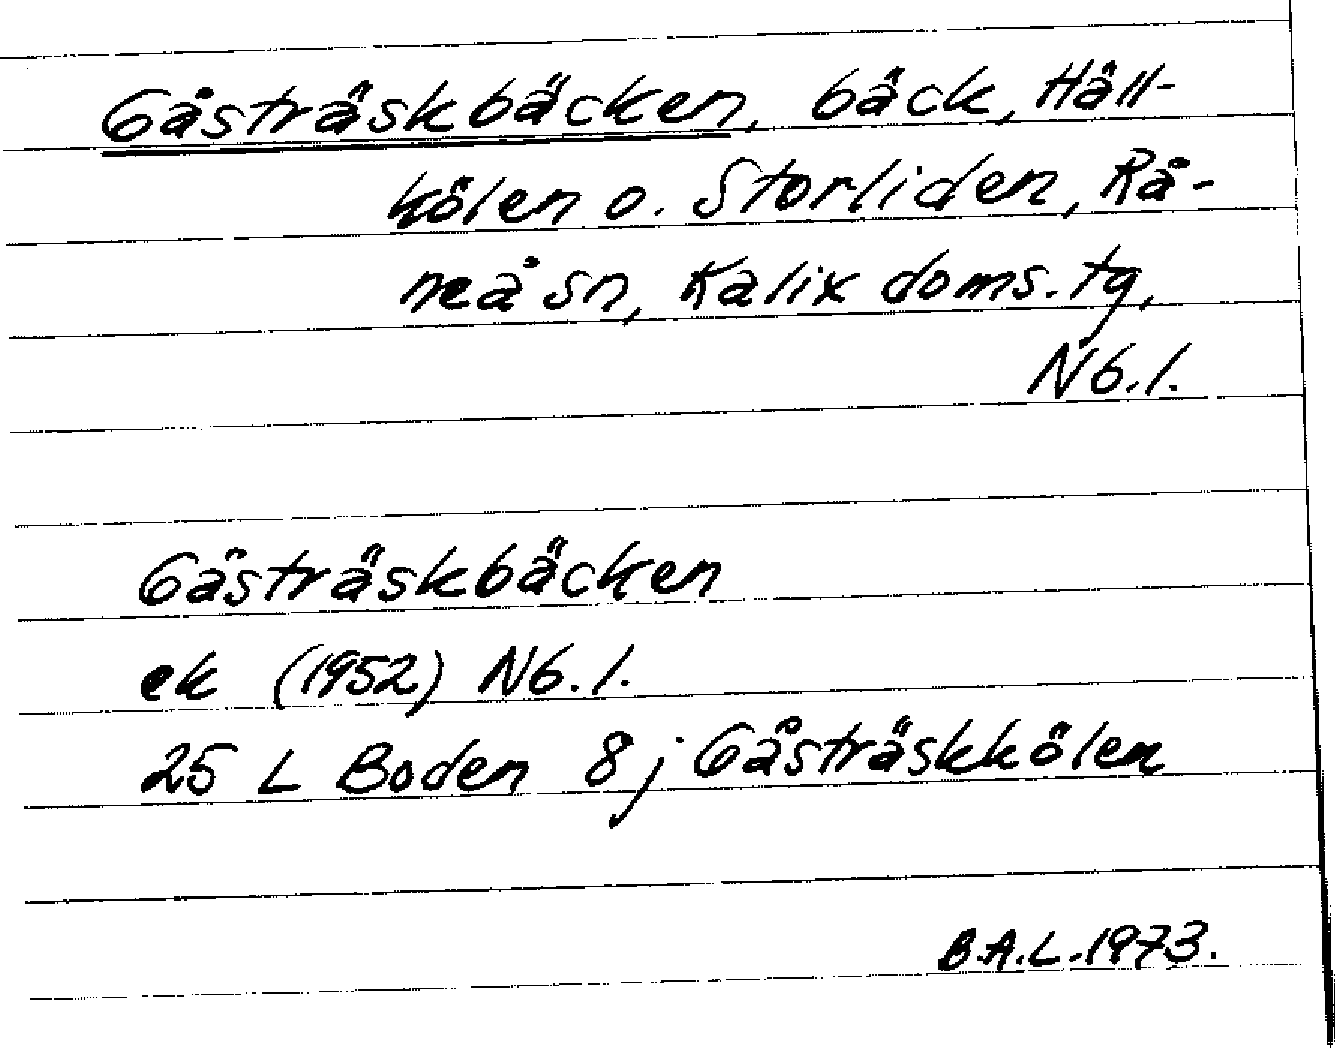 Gåsträskbäcken, bäck, Häll-
kölen o. Storliden, Rå-
neå sn, Kalix doms. tg,
Nb.l.
Gåsträskbäcken
ek (1952) Nb.l.
25 L Boden 8 j Gåsträskkölen
B.A.L. 1973.